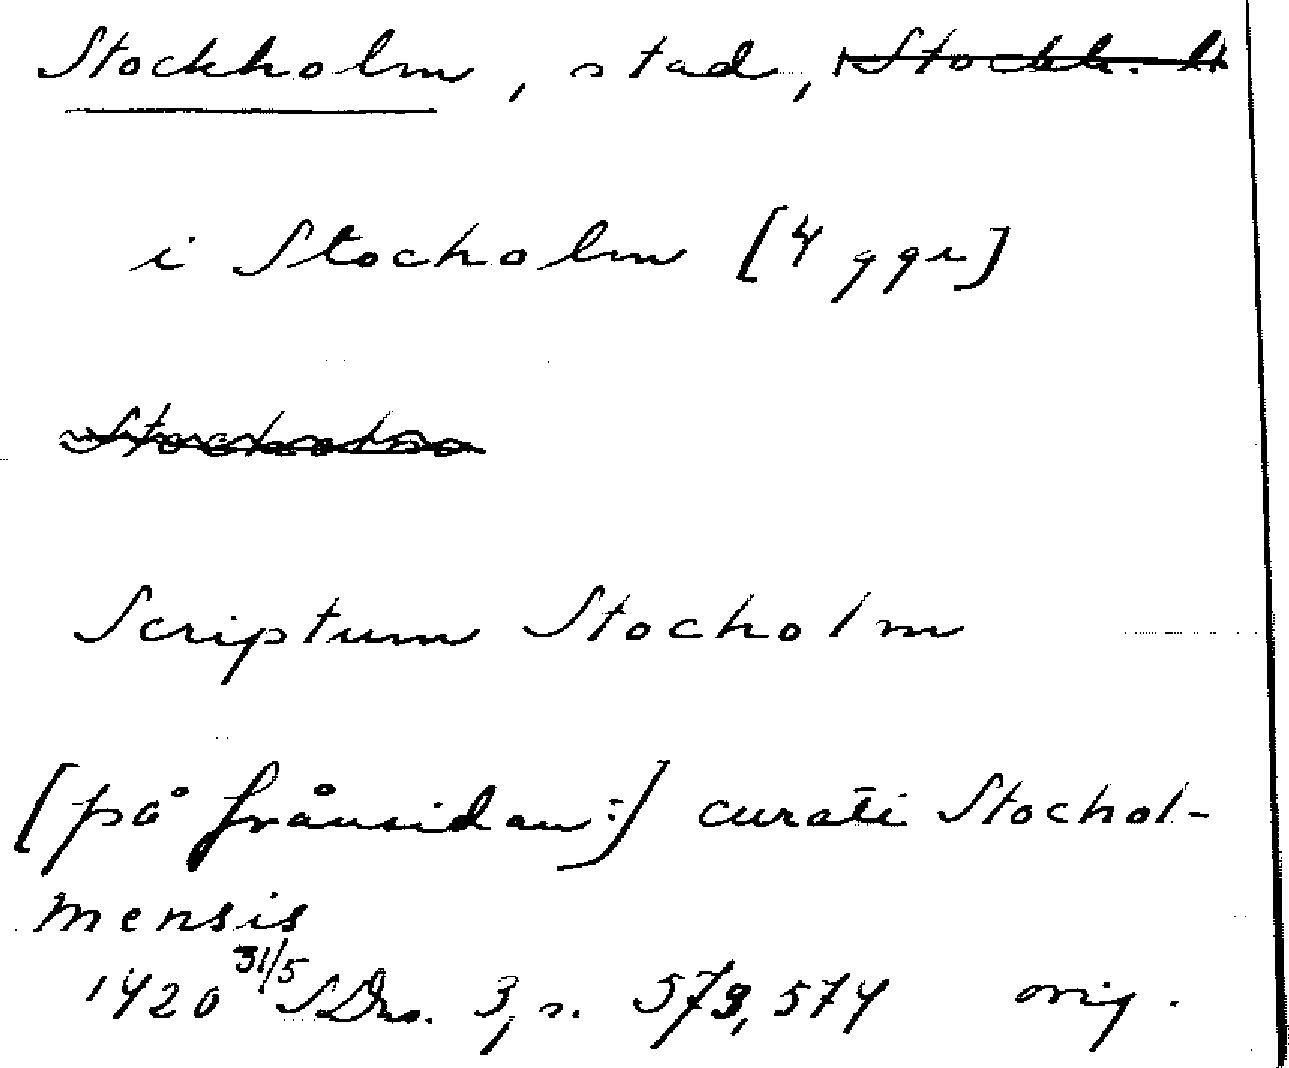 Stockholm, stad, Stockh. lt
i Stocholm [4 ggr]
Stocholm
Scriptum Stocholm
[på frånsidan:] curati Stochol-
mensis
1420 31/5 SDns. 3, s. 573, 574 orig.